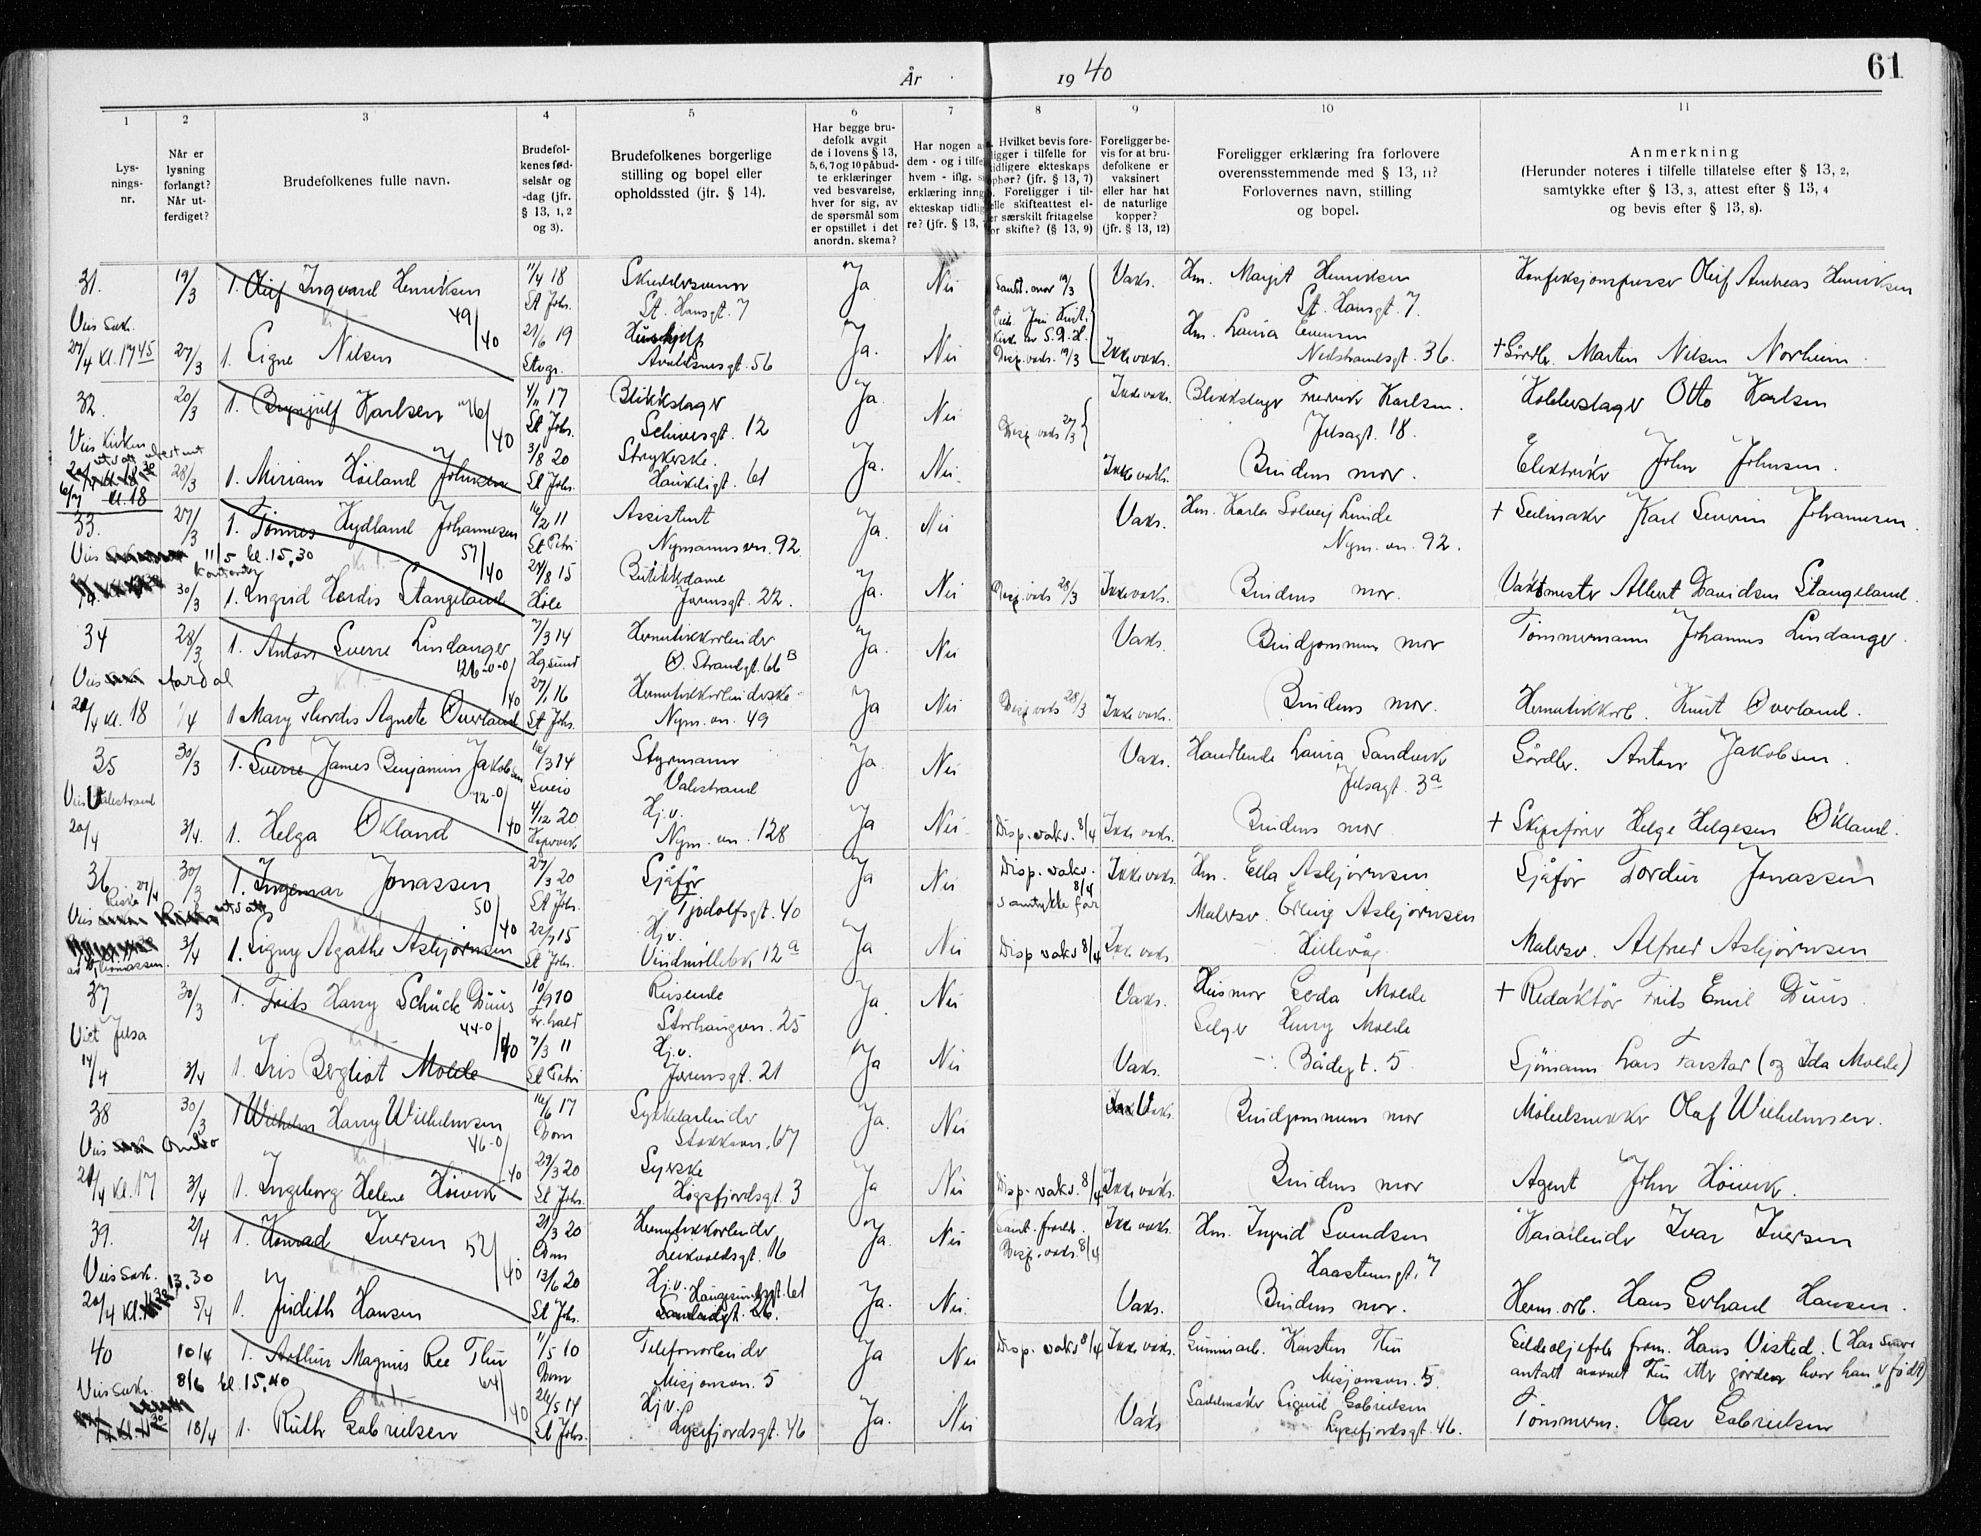 År 1940
61
1 2 3 4 5 6 7 8 9 10 11
Lys-
nings-
nr.
Når er
lysning
forlangt?
Når ut-
ferdiget?
Brudefolkenes fulle navn.
Brudefol-
kenes fød-
selsår og
-dag (jfr.
§ 13, 1, 2
og 3).
Brudefolkenes borgerlige
stilling og bopel eller
opholdssted (jfr. § 14).
Har begge bru-
defolk avgit
de i lovens § 13,
5, 6, 7 og 10 påbud-
te erklæringer
ved besvarelse,
hver for sig, av
de spørsmål som
er opstillet i det
anordn. skema?
Har nogen a
dem - og i tilfe
hvem - iflg. s
erklæring inng
ekteskap tidlig
re? (jfr. § 13,
Hvilket bevis fore-
ligger i tilfelle for
tidligere ekteskaps
ophør? (jfr. § 13, 7)
Foreligger i til-
elle skifteattest el-
er særskilt fritagelse
or skifte? (§ 13, 9)
Foreligger be-
vis for at bru-
defolkene er
vaksinert
eller har hat
de naturlige
kopper?
(jfr. § 13, 12)
Foreligger erklæring fra forlovere
overensstemmende med § 13, 11?
Forlovernes navn, stilling
og bopel.
Anmerkning
(Herunder noteres i tilfelle tillatelse efter § 13, 2,
samtykke efter § 13, 3, attest efter § 13, 4
og bevis efter § 13, 8).
31. 19/3 1. Olaf Ingvard Henriksen 11/4 18 Ja Nei Samt. mor 19/3 Vaks. Hm. Margit Henriksen Konfeksjonspresser Oluf Andreas Henriksen
49/40 St Johs. St. Hansgt. 7 St. Hansgt. 7.
Vies Sak. 21/6 19 Hushjelp Ja. Hm. Laura
27/4 Kl. 17 45 27/3 1. Signe Nilsen Stvgr. Avaldsnesgt. 56 Nei Disp. vaks. 19/3 Ikke vaks. Nedstrandsgt. 36. + Gårdbr. Martin Nilsen Norheim.
32. 20/3 1. Brynjulf Karlsen 46/40 4/11 17 Blikkslager Ja. Nei Ikke vaks. Blikkslager Fredrik Karlsen. Kobberslager Otto Karlsen
St Johs. Schivesgt. 12 Disp. vaks 27/3 Jelsagt. 18.
Vies Kirken utsatt ubestemt
28/3 1. Miriam Höiland Johnsen 3/8 20 Strykerske. Ja. Nei. Ikke vaks. Brudens mor. Elektriker John Johnsen.
6/7 kl. 18 St Johs. Haukeligt. 61
33. 27/3 1. Tönnes Hydland Johannesen 16/2 11 Assistent Ja. Nei Vaks. Hm. Karla Solveig Lunde + Seilmaker Karl Severin Johannesen.
57/40 St Petri Nymannsvn. 92. Nym. vn. 92.
Vies 11/5 kl. 15,30 kontoret
30/3 1. Ingrid Herdis Stangeland 24/8 15 Butikkdame Ja. Nei Disp. vaks 28/3 Ikke vaks. Brudens mor. Vaktmester Albert Davidsen Stangeland.
Höle Jærensgt. 22.
34 28/3 1. Anton Sverre Lindanger 7/3 14 Hermetikkarbeider Ja. Nei Vaks. Brudgommens mor Tömmermann Johannes Lindanger.
126-0-0/40 Hgsund Ø. Strandgt. 66 B
Vies Aardal 27/1 16 Hermetikkarbeiderske
/4 kl. 18 1/4 1 Mary Thordis Agnete Överland St Johs. Nym. vn. 49 Ja Nei Disp vaks 28/3 Ikke vaks. Brudens mor. Hermetikkarb. Knut Överland.
35 30/3 1. Sverre James Benjamin Jakobsen 16/3 14 Styrmann Ja. Nei Vaks. Handlende Laura Sandvik Gårdbr. Anton Jakobsen.
72-0/40 Sveio Valestrand Jelsagt. 3a
Vies Valestrand 4/12 20 Hj.v.
20/4 3/4. 1. Helga Økland Nym. vn. 128 Ja Nei. Disp. vaks. 8/4 Ikke vaks. Brudens mor. + Skipsfører Helge Helgesen Økland.
36 30/3 1. Ingemar Jonassen 27/3 20 Sjåfør Ja Nei Disp. vaks. 8/4 Ikke vaks. Hm. Ella Asbjørnsen Sjåfør Tordin Jonassen
50/40 St Johs. Tjodolfsgt. 40 samtykke far Malersv. Erling Asbjørnsen
Vies utsatt 22/7 15 Hj.v.
av Thomassen. 3/4 1. Signy Agathe Asbjørnsen St Johs. Vindmöllebk. 12a Ja Nei Disp vaks 8/4 Ikke vaks. Hillevåg. Malersv. Alfred Asbjørnsen
37 30/3 1. Frits Harry Schück Duus 10/9 10 Reisende Ja. Nei Vaks. Husmor Gerda Molde + Redaktör Frits Emil Duus.
44-0/40 Fr.hald Storhaugvn. 25 Selger Henry Molde
Viet Jelsa 7/3 11 Hj.v.
14/4 3/4 1. Iris Bergliot Molde St Petri Jærensgt. 21 Ja Nei Vaks. -"- Bådegt. 5 Sjömann Lars Farstad (og Ida Molde)
38 30/3 1 Wilhelm Harry Wilhelmsen 16/6 17 Sykkelarbeider Ja. Nei Vaks. Brudgommens mor Möbelsnekker Olaf Wilhelmsen.
46-0/40 Dom Stokkavn. 67
Vies Ombo 29/3 20 Syerske
/4 kl. 17 3/4 1. Ingeborg Helene Höivik St Johs. Högsfjordsgt. 3 Ja Nei Disp. vaks. 8/4 Ikke vaks. Brudens mor Agent John Höivik.
39. 2/4 1. Konrad Iversen 52/40 21/3 20 Hermetikkarbeider Ja. Nei Samt. foreld. Ikke vaks. Hm. Ingrid Svendsen Kaiarbeider Ivar Iversen
Dom Leikvollsgt. 16 Disp. vaks. 8/4 Haasteinsgt. 7
Vies Sak. 13.30 13/6 20 Hj.v. Haugesundsgt. 61
20/4 kl. 5/4 1. Judith Hansen St Johs. Ja. Nei. Vaks. Brudens mor. Herm. arb. Hans Gerhard Hansen.
40 10/4 1. Arthur Magnus Ree Thu 11/5 10 Telefonarbeider Ja Nei Disp. vaks 8/4 Ikke vaks. Gummiarb. Karsten Thu Sildeoljefabr. Hans Visted. (Har
64/40 Dom Misjonsvn. 5 Misjonsvn. 5. antatt navnet Tu etter gården hvor han er födt)
Vies Sak. 8/6 kl. 15,40 26/5 14 Hj.v. Salmaker Sigurd Gabrielsen
18/4 1. Ruth Gabrielsen St Johs. Lysefjordsgt. 46 Ja. Nei Vaks Lysefjordsgt. 46. Tömmerm. Olav Gabrielsen